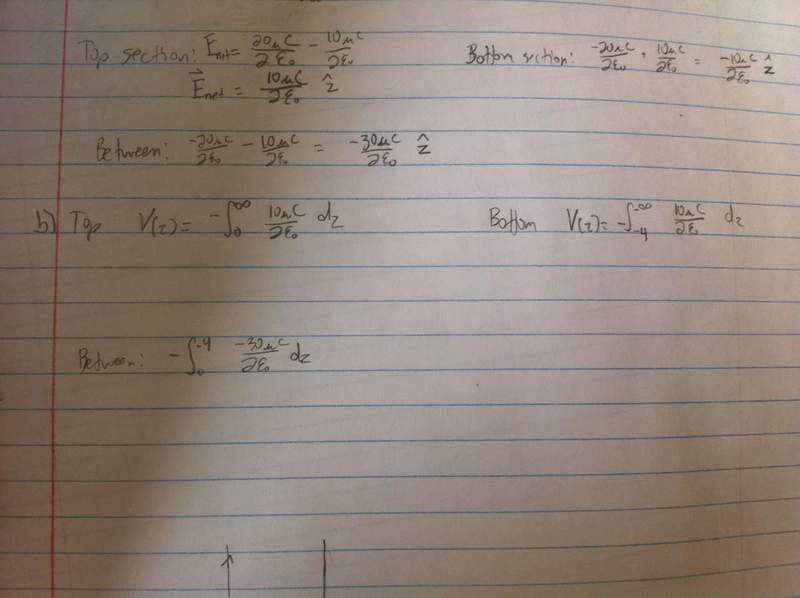 Top section: E_net = 20μC/2ε₀ - 10μC/2ε₀
Bottom section: -20μC/2ε₀ + 10μC/2ε₀ = -10μC/2ε₀ ẑ
E⃗_net = 10μC/2ε₀ ẑ
Between: -20μC/2ε₀ - 10μC/2ε₀ = -30μC/2ε₀ ẑ
b) Top V(z) = -∫₀^∞ 10μC/2ε₀ dz
Bottom V(z) = -∫₋₄^-∞ 10μC/2ε₀ dz
Between: -∫₀^-4 -30μC/2ε₀ dz